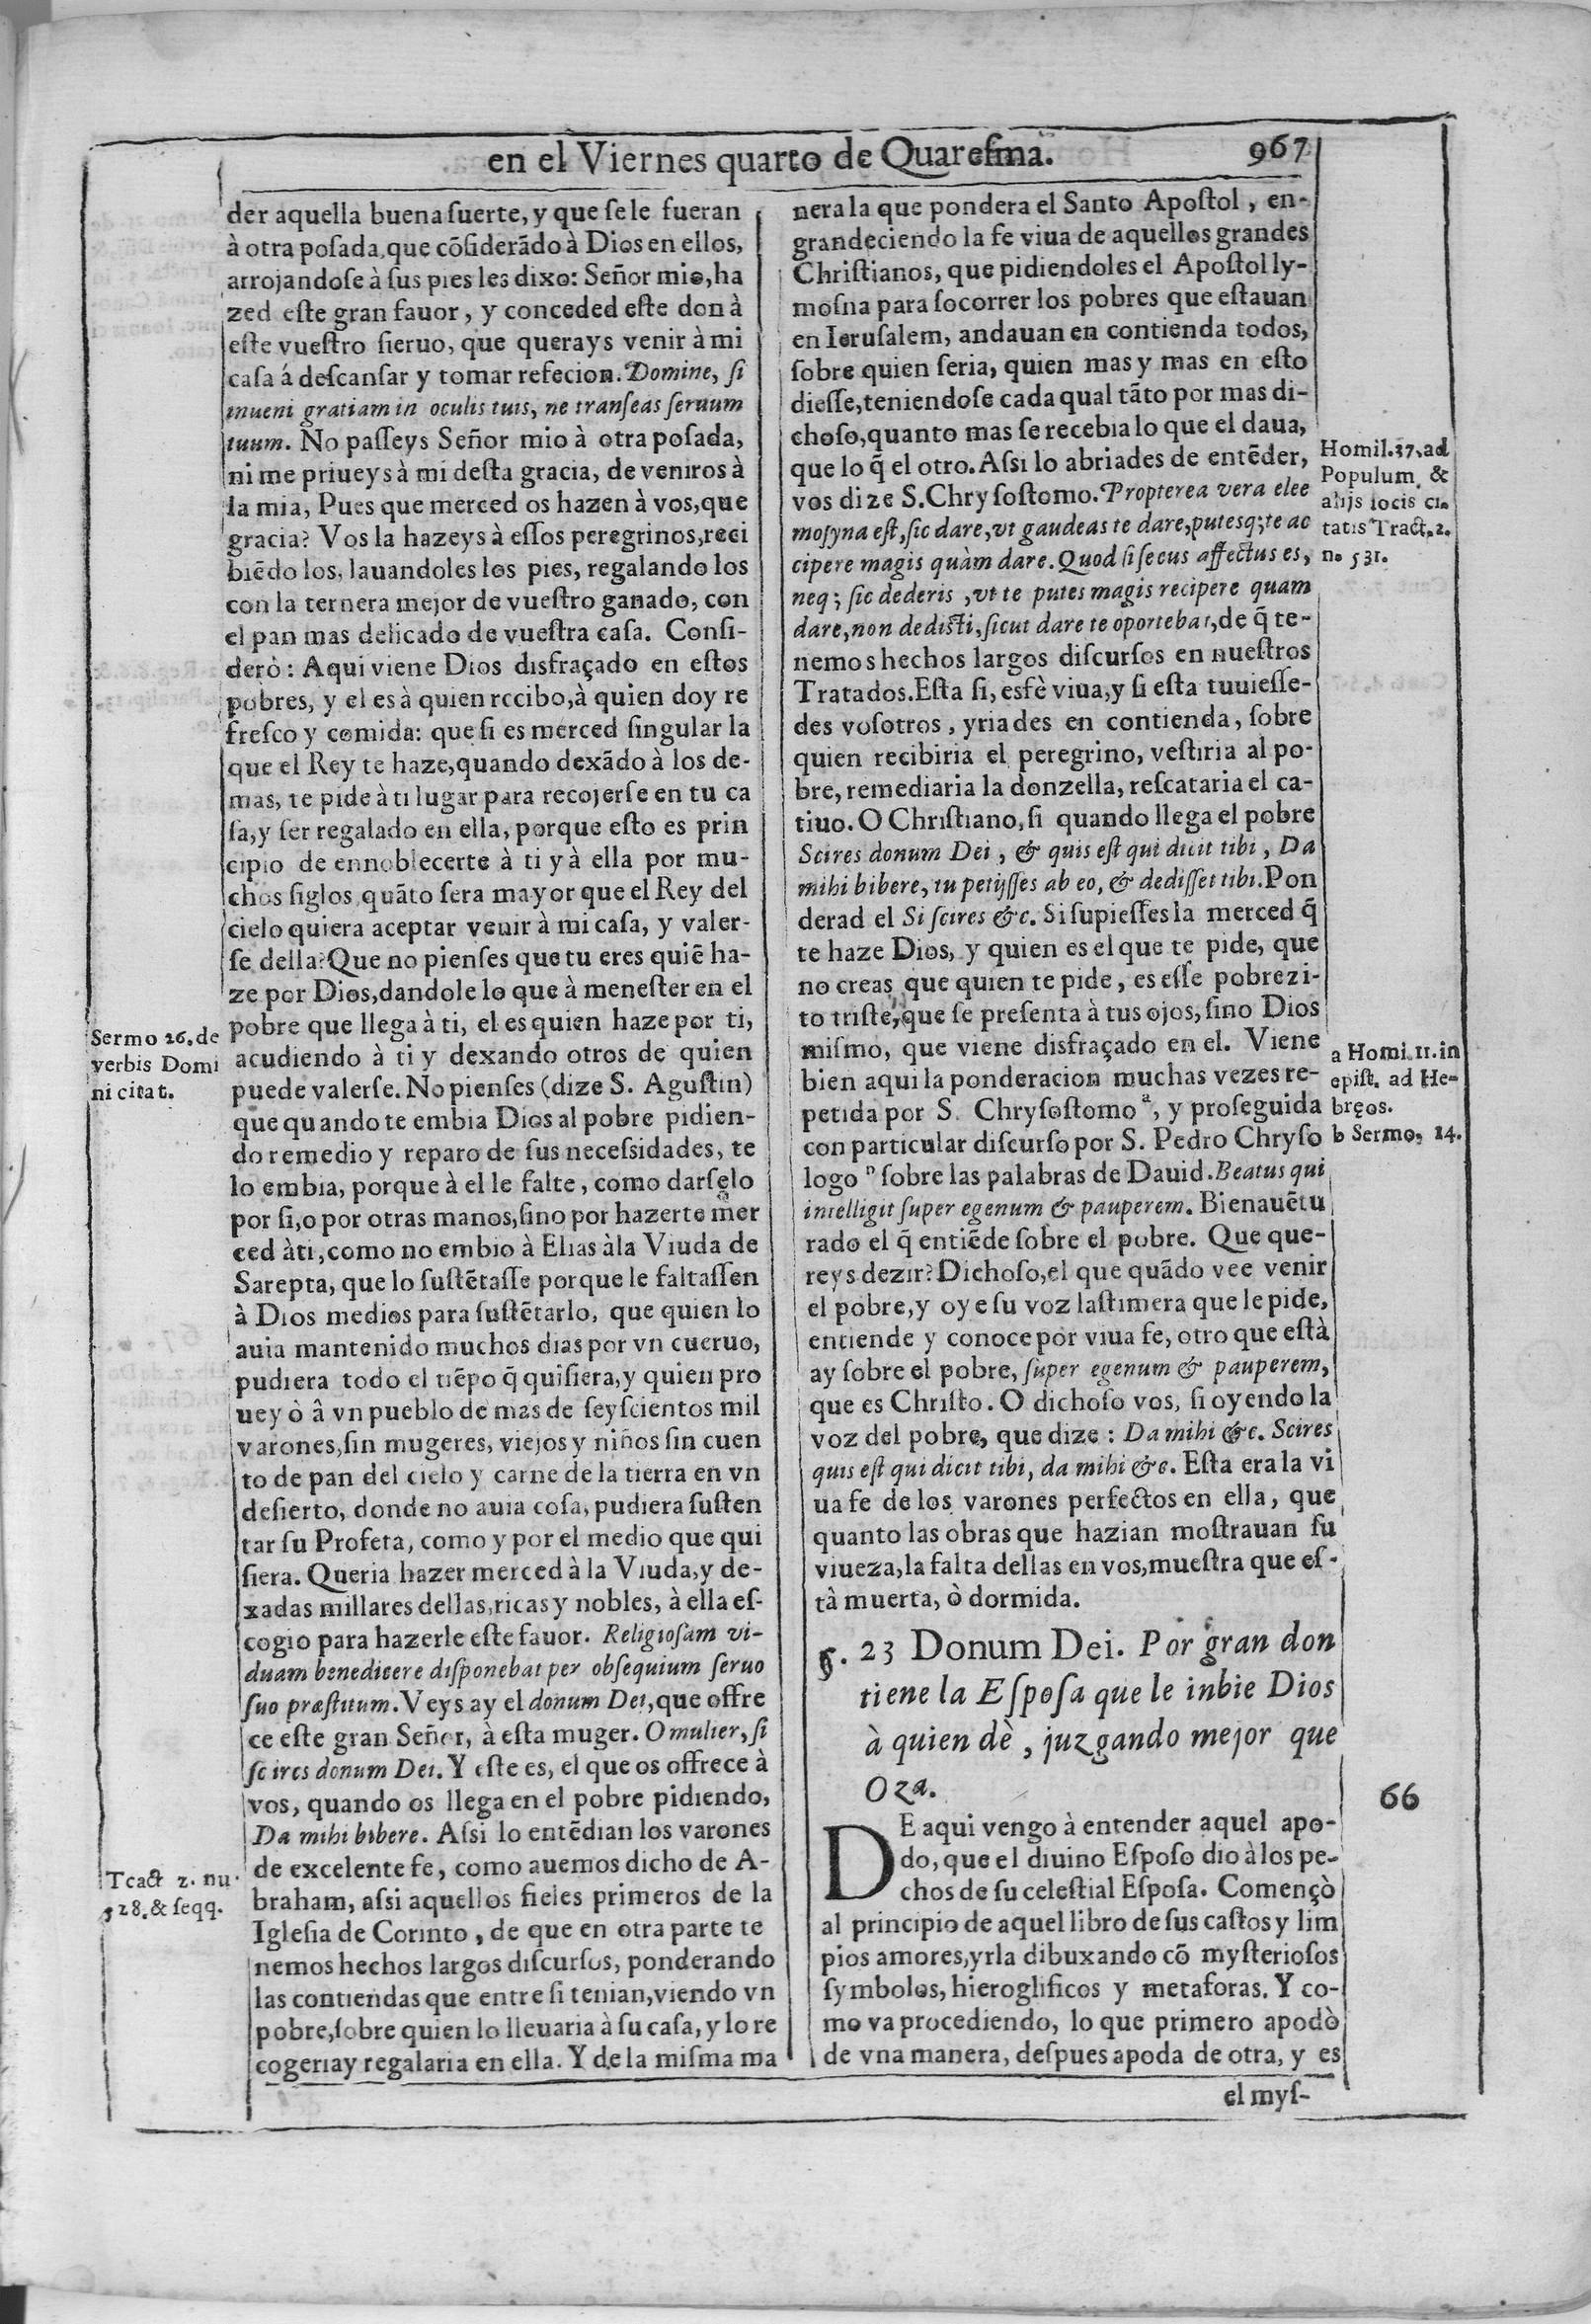 en el Viernes quarto de Quaresma. 967
der aquella buena suerte, y que se le fueran
à otra posada, que cõsiderãdo à Dios en ellos,
arrojandose à sus pies les dixo: Señor mio, ha
zed este gran fauor, y conceded este don à
este vuestro sieruo, que querays venir à mi
casa á descansar y tomar refecion. Domine, si
inueni gratiam in oculis tuis, ne transeas seruum
tuum. No passeys Señor mio à otra posada,
ni me priueys à mi desta gracia, de veniros à
la mia, Pues que merced os hazen à vos, que
gracia? Vos la hazeys à essos peregrinos, reci
biẽdo los, lauandoles los pies, regalando los
con la ternera mejor de vuestro ganado, con
el pan mas delicado de vuestra casa. Consi-
derò: Aqui viene Dios disfraçado en estos
pobres, y el es à quien recibo, à quien doy re
fresco y comida: que si es merced singular la
que el Rey te haze, quando dexãdo à los de-
mas, te pide à ti lugar para recojerse en tu ca
sa, y ser regalado en ella, porque esto es prin
cipio de ennoblecerte à ti y à ella por mu-
chos siglos, quãto sera mayor que el Rey del
cielo quiera aceptar venir à mi casa, y valer-
se della? Que no pienses que tu eres quiẽ ha-
ze por Dios, dandole lo que à menester en el
pobre que llega à ti, el es quien haze por ti,
acudiendo à ti y dexando otros de quien
puede valerse. No pienses (dize S. Agustin)
que quando te embia Dios al pobre pidien-
do remedio y reparo de sus necessidades, te
lo embia, porque à el le falte, como darselo
por si, o por otras manos, sino por hazerte mer
ced à ti, como no embio à Elias à la Viuda de
Sarepta, que lo sustẽtasse porque le faltassen
à Dios medios para sustẽtarlo, que quien lo
auia mantenido muchos dias por vn cueruo,
pudiera todo el tiẽpo q̃ quisiera, y quien pro
ueyò â vn pueblo de mas de seyscientos mil
varones, sin mugeres, viejos y niños sin cuen
to de pan del cielo y carne de la tierra en vn
desierto, donde no auia cosa, pudiera susten
tar su Profeta, como y por el medio que qui
siera. Queria hazer merced à la Viuda, y de-
xadas millares dellas, ricas y nobles, à ella es-
cogio para hazerle este fauor. Religiosam vi-
duam benedicere disponebat per obsequium seruo
suo præstitum. Veys ay el donum Dei, que offre
ce este gran Señor, à esta muger. O mulier, si
scires donum Dei. Y este es, el que os offrece à
vos, quando os llega en el pobre pidiendo,
Da mihi bibere. Assi lo entẽdian los varones
de excelente fe, como auemos dicho de A-
braham, assi aquellos fieles primeros de la
Iglesia de Corinto, de que en otra parte te
nemos hechos largos discursos, ponderando
las contiendas que entre si tenian, viendo vn
pobre, sobre quien lo lleuaria à su casa, y lo re
cogeria y regalaria en ella. Y de la misma ma
Sermo 26. de
verbis Domi
ni citat.
Tract 2. nu.
528. & seqq.
nera la que pondera el Santo Apostol, en-
grandeciendo la fe viua de aquellos grandes
Christianos, que pidiendoles el Apostol ly-
mosna para socorrer los pobres que estauan
en Ierusalem, andauan en contienda todos,
sobre quien seria, quien mas y mas en esto
diesse, teniendose cada qual tãto por mas di-
choso, quanto mas se recebia lo que el daua,
que lo q̃ el otro. Assi lo abriades de entẽder,
vos dize S. Chrysostomo. Propterea vera elee
mosyna est, sic dare, vt gaudeas te dare, putesq; te ac
cipere magis quàm dare. Quod si secus affectus es,
neq; sic dederis, vt te putes magis recipere quam
dare, non dedisti, sicut dare te oportebat, de q̃ te-
nemos hechos largos discursos en nuestros
Tratados. Esta si, es fè viua, y si esta tuuiesse-
des vosotros, yriades en contienda, sobre
quien recibiria el peregrino, vestiria al po-
bre, remediaria la donzella, rescataria el ca-
tiuo. O Christiano, si quando llega el pobre
Scires donum Dei, & quis est qui dicit tibi, Da
mihi bibere, tu petijsses ab eo, & dedisset tibi. Pon
derad el Si scires &c. Si supiesses la merced q̃
te haze Dios, y quien es el que te pide, que
no creas que quien te pide, es esse pobrezi-
to triste, que se presenta à tus ojos, sino Dios
mismo, que viene disfraçado en el. Viene
bien aqui la ponderacion muchas vezes re-
petida por S. Chrysostomo a, y proseguida
con particular discurso por S. Pedro Chryso
logo n sobre las palabras de Dauid. Beatus qui
intelligit super egenum & pauperem. Bienauẽtu
rado el q̃ entiẽde sobre el pobre. Que que-
reys dezir? Dichoso, el que quãdo vee venir
el pobre, y oye su voz lastimera que le pide,
entiende y conoce por viua fe, otro que està
ay sobre el pobre, super egenum & pauperem,
que es Christo. O dichoso vos, si oyendo la
voz del pobre, que dize: Da mihi &c. Scires
quis est qui dicit tibi, da mihi &c. Esta era la vi
ua fe de los varones perfectos en ella, que
quanto las obras que hazian mostrauan su
viueza, la falta dellas en vos, muestra que es-
tà muerta, ò dormida.
§. 23 Donum Dei. Por gran don
tiene la Esposa que le inbie Dios
à quien dè, juzgando mejor que
Oza.
DE aqui vengo à entender aquel apo-
do, que el diuino Esposo dio à los pe-
chos de su celestial Esposa. Començò
al principio de aquel libro de sus castos y lim
pios amores, yrla dibuxando cõ mysteriosos
symbolos, hieroglificos y metaforas. Y co-
mo va procediendo, lo que primero apodò
de vna manera, despues apoda de otra, y es
el mys-
Homil. 37. ad
Populum, &
alijs locis ci-
tatis Tract. 2.
no 531.
a Homi. 11. in
epist. ad He-
breos.
b Sermo, 14.
66